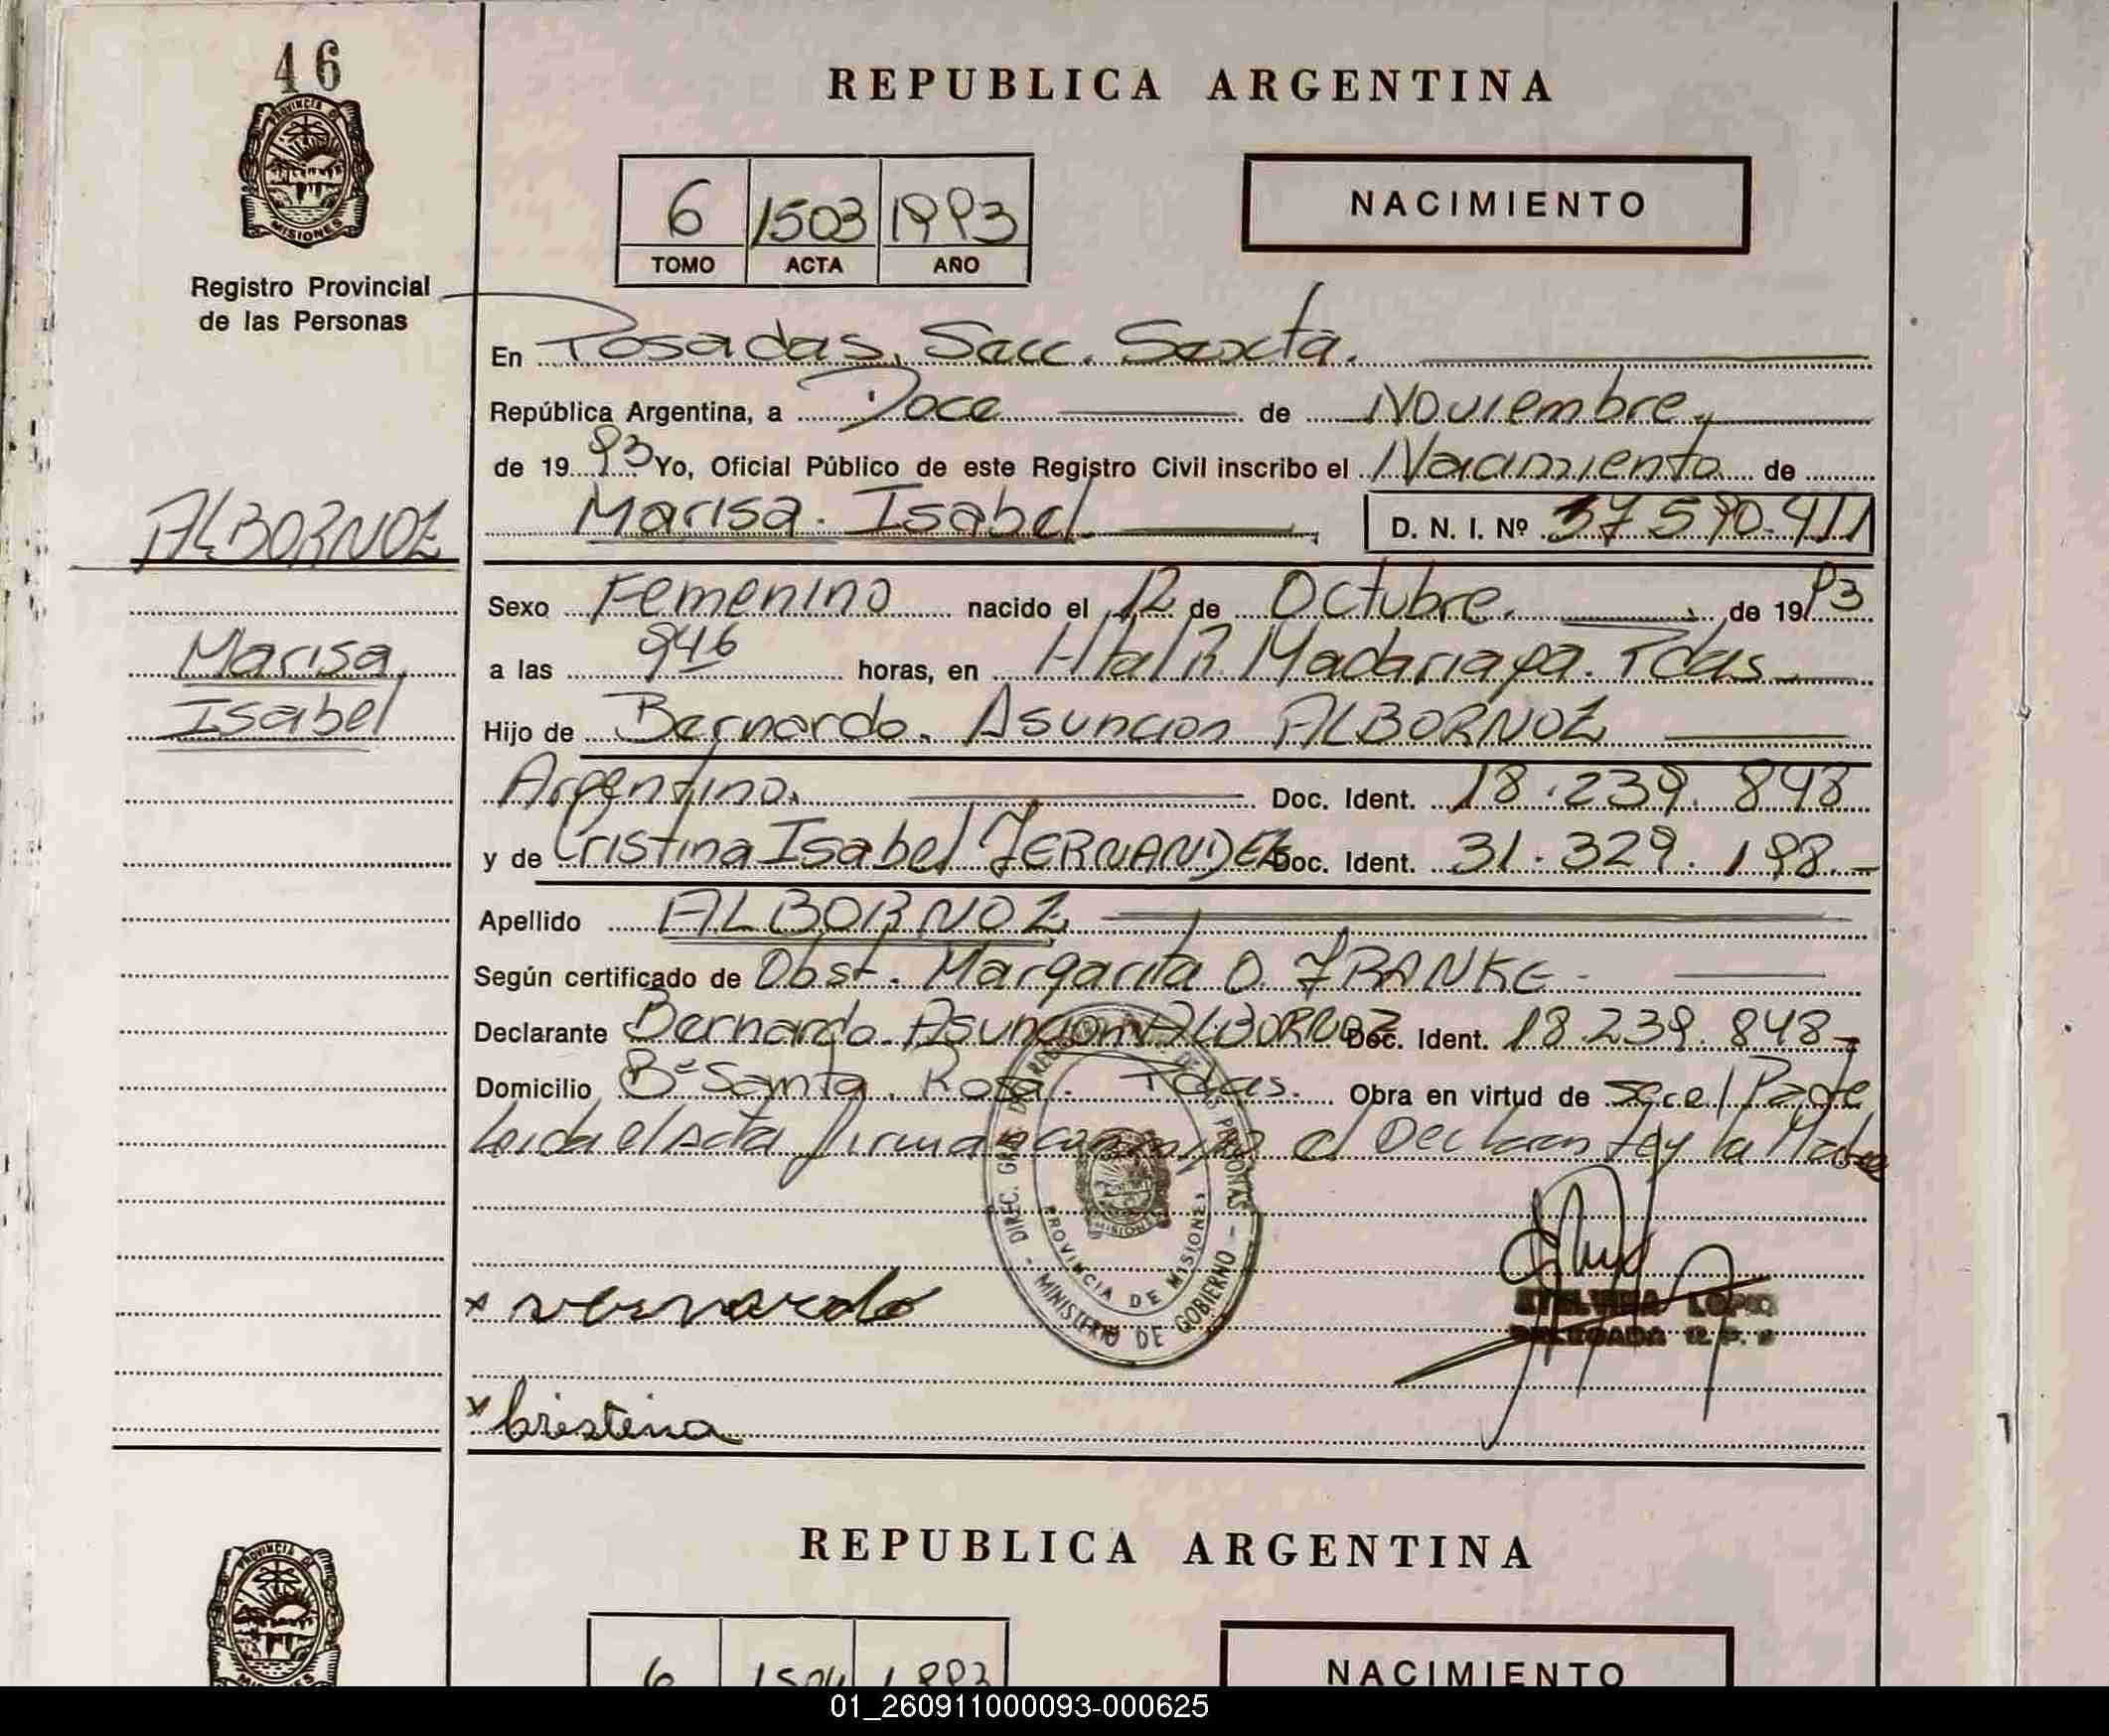 46
PROVINCIA DE
MISIONES
Registro Provincial
de las Personas
REPUBLICA ARGENTINA
6 1503 1993
TOMO ACTA AÑO
NACIMIENTO
En Posadas, Secc. Sexta.
República Argentina, a Doce de Noviembre,
de 1993 Yo, Oficial Público de este Registro Civil inscribo el Nacimiento de
Marisa Isabel D. N. I. Nº 37.590.411
ALBORNOZ
Marisa
Isabel
Sexo Femenino nacido el 12 de Octubre. de 1993
a las 946 horas, en Htal R. Madariaga. Pdas
Hijo de Bernardo. Asuncion ALBORNOZ
Argentino. Doc. Ident. 18.239.848
y de Cristina Isabel FERNANDEZ Doc. Ident. 31.329.198.-
Apellido ALBORNOZ
Según certificado de Obst. Margarita O. FRANKE-
Declarante Bernardo Asuncion ALBORNOZ Doc. Ident. 18.239.848-
Domicilio Bº Santa Rosa. Pdas. Obra en virtud de ser el Padre
Leida el Acta firman conmigo el Declarante y la Madre
DIREC. GRAL. DE REG. DE LAS PERSONAS - MINISTERIO DE GOBIERNO -
PROVINCIA DE MISIONES
MISIONES
x vernardo
LOPEZ
DELEGADA R. P. P
x Cristina
REPUBLICA ARGENTINA
PROVINCIA DE
6 1504 1993
NACIMIENTO
01_260911000093-000625